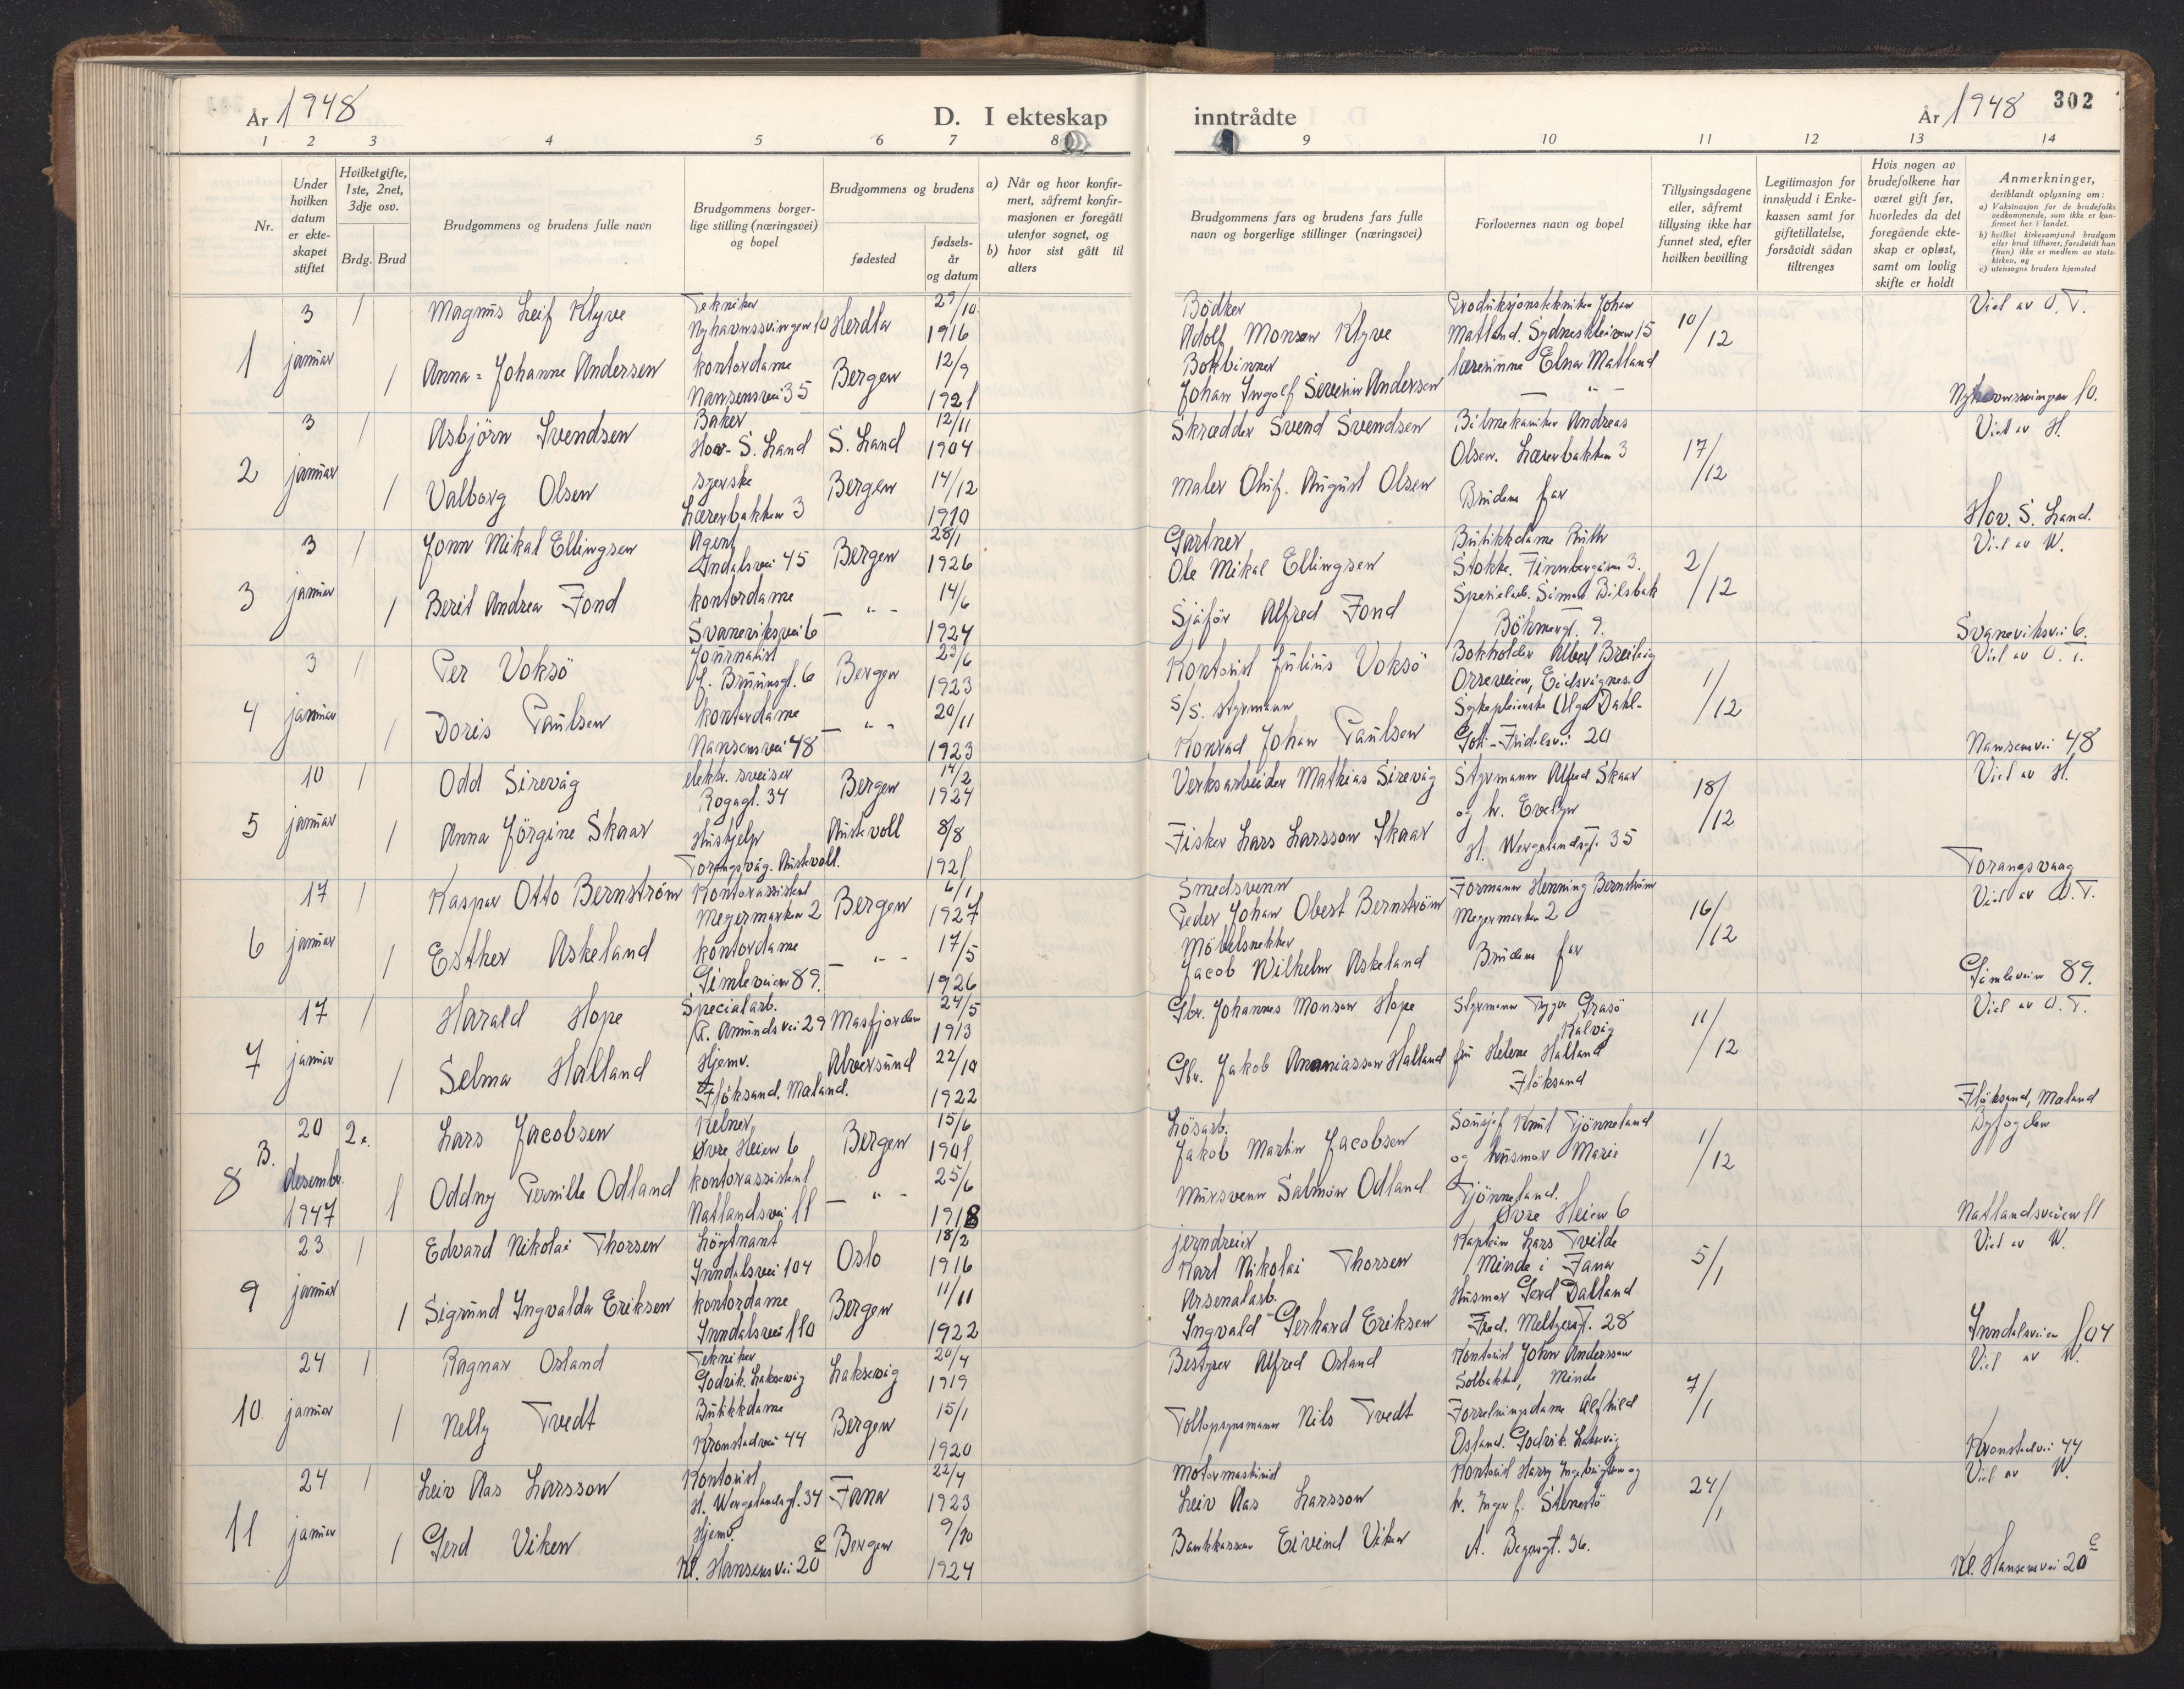 År 1948
D. I ekteskap
1 2 3 4 5 6 7 8
Nr.
Under hvilken datum er ekteskapet stiftet
Hvilket gifte, 1ste, 2net, 3dje osv.
Brdg. Brud
Brudgommens og brudens fulle navn
Brudgommens borgerlige stilling (næringsvei) og bopel
Brudgommens og brudens
fødested
fødselsår og datum
a) Når og hvor konfirmert, såfremt konfirmasjonen er foregått utenfor sognet, og
b) hvor sist gått til alters
inntrådte
År 1948 302
9 10 11 12 13 14
Brudgommens fars og brudens fars fulle navn og borgerlige stillinger (næringsvei)
Forlovernes navn og bopel
Tillysingsdagene eller, såfremt tillysing ikke har funnet sted, efter hvilken bevilling
Legitimasjon for innskudd i Enkekassen samt for giftetillatelse, forsåvidt sådan tiltrenges
Hvis nogen av brudefolkene har været gift før, hvorledes da det foregående ekteskap er opløst, samt om lovlig skifte er holdt
Anmerkninger,
deriblandt oplysning om:
a) Vaksinasjon for de brudefolks vedkommende, som ikke er konfirmert her i landet.
b) hvilket kirkesamfund brudgom eller brud tilhører, forsåvidt han (hun) ikke er medlem av statskirken, og
c) utensogns bruders hjemsted
1 3 januar
1 Magnus Leif Klyve Tekniker Nyhavnssvingen 10 Herdla 29/10 1916
1 Anna-Johanne Andersen kontordame Nansensvei 35 Bergen 12/9 1921
Bödker Adolf Monsen Klyve
Bokbinner Johan Ingolf Severin Andersen
Produksjonstekniker Johan Matland. Sydneskleiven 15
lærerinne Elna Matland — " —
10/12
Viet av O. T.
Nyhavnssvingen 10.
2 3 januar
1 Asbjörn Svendsen Baker Hov - S. Land S. Land 12/11 1904
1 Valborg Olsen syerske Lærerbakken 3 Bergen 14/12 1910
Skredder Svend Svendsen
maler Oluf. August Olsen
Bilmekaniker Andreas Olsen. Lærerbakken 3
Brudens far
17/12
Viet av H.
Hov. S. Land.
3 3 januar
1 Jonn Mikal Ellingsen Agent Indalsvei 45 Bergen 28/1 1926
1 Berit Andrea Fond kontordame Svaneviksvei 6 — " — 14/6 1924
Gartner Ole Mikal Ellingsen
Sjåför Alfred Fond
Butikkdame Ruth Stokke. Finnbergåsen 3.
Spesialarb. Simon Bilsbak Böhmergt. 9.
2/12
Viet av W.
Svaneviksvei 6.
4 3 januar
1 Per Voksö Journalist C. Bruunsgt. 6 Bergen 23/6 1923
1 Doris Paulsen kontordame Nansensvei 48 — " — 20/11 1923
Kontorist Julius Voksö
S/S. styrmann Konrad Johan Paulsen
Bokholder Albert Breivig Orreveien, Eidsvågnes.
Sykepleierske Olga Dahl-Goli-Fridalsvei 20
1/12
Viet av O. T.
Nansensvei 48
5 10 januar
1 Odd Sirevåg elektr. sveiser Rogagt. 34 Bergen 14/2 1924
1 Anna Jörgine Skaar Hushjelp Torangsvåg. Austevoll. Austevoll 8/8 1921
Verksarbeider Mathias Sirevåg
Fisker Lars Larsson Skaar
Styrmann Alfred Skaar og hr. Evelyn H. Wergelandsgt. 35
18/12
Viet av H.
Torangsvaag
6 17 januar
1 Kaspar Otto Bernström Kontorassistent Meyermarken 2 Bergen 6/1 1927
1 Esther Askeland kontordame Gimleveien 89. — " — 17/5 1926
Smedsvenn Peder Johan Obert Bernström
Möbelsnekker Jacob Wilhelm Askeland
Formann Henning Bernström Meyermarken 2
Brudens far
16/12
Viet av O. T.
Gimleveien 89.
7 17 januar
1 Harald Hope Specialarb. R. Amundsvei 29 Masfjorden 24/5 1913
1 Selma Halland Hjemv. Flöksand. Mæland. Alversund 22/10 1922
Gbr. Johannes Monsen Hope
Gbr. Jakob Ananiassen Halland
Styrmann Trygve Grasö Kalvåg
fru Helene Halland Flöksand
11/12
Viet av O. T.
Flöksand, Mæland
8 B. 20 desembr. 1947
2. Lars Jacobsen Kelner Øvre Heien 6 Bergen 15/6 1901
1 Oddny Pernille Odland kontorassistent Natlandsvei 11 — " — 25/6 1918
Lösarb. Jakob Martin Jacobsen
Mursvenn Salmon Odland
Sousjef Knut Tjönneland og husmor Marie Tjönneland. Øvre Heien 6
1/12
Byfogden
Natlandsveien 11
9 23 januar
1 Edvard Nikolai Thorsen Löytnant Inndalsvei 104 Oslo 18/2 1916
1 Sigrund Ingvalda Eriksen kontordame Inndalsvei 110 Bergen 11/11 1922
jerndreier Karl Nikolai Thorsen
Arsenalarb. Ingvald Gerhard Eriksen
Kaptein Lars Tvilde Minde i Fana
Husmor Gerd Dalland Fred. Meltzersgt. 28
5/1
Viet av W.
Inndalsveien 104
10 24 januar
1 Ragnar Osland Tekniker Godvik. Laksevåg Laksevåg 20/4 1919
1 Nelly Tvedt Butikkdame Kronstadvei 44 Bergen 15/1 1920
Bestyrer Alfred Osland
Tollopsynsmann Nils Tvedt
Kontorist John Anderssen Solbakken, Minde
Forretningsdame Alfhild Osland. Godvik. Laksevåg
7/1
Viet av W.
Kronstadvei 44
11 24 januar
1 Leiv Aas Larsson Kontorist H. Wergelandsgt. 34 Fana 22/4 1923
1 Gerd Viken Hjemv. Kl. Hansens vei 20 c Bergen 9/10 1924
Motormaskinist Leiv Aas Larsson
Bankkasserer Eivind Viken
Kontorist Harry Ingebrigtsen og hr. Inger f. Stenestö A. Beyersgt. 36.
24/1
Viet av W.
Kl. Hansens vei 20 c